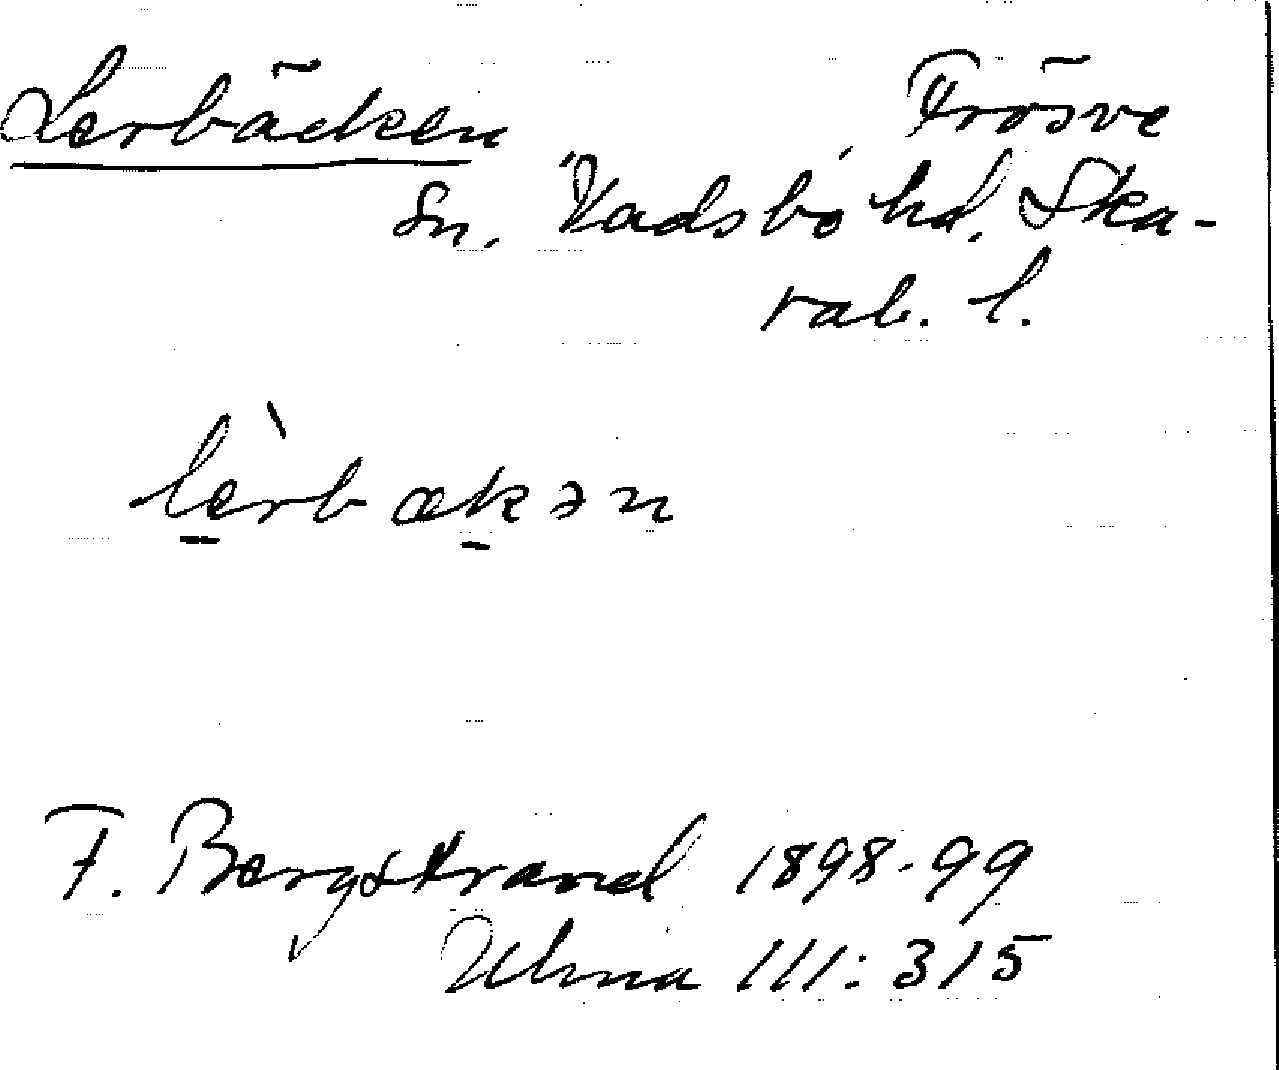 Lerbäcken Frösve
Sn. Vadsbo hd. Ska-
rab. l.
lèrbækən
F. Bergstrand 1898-99
III: 315